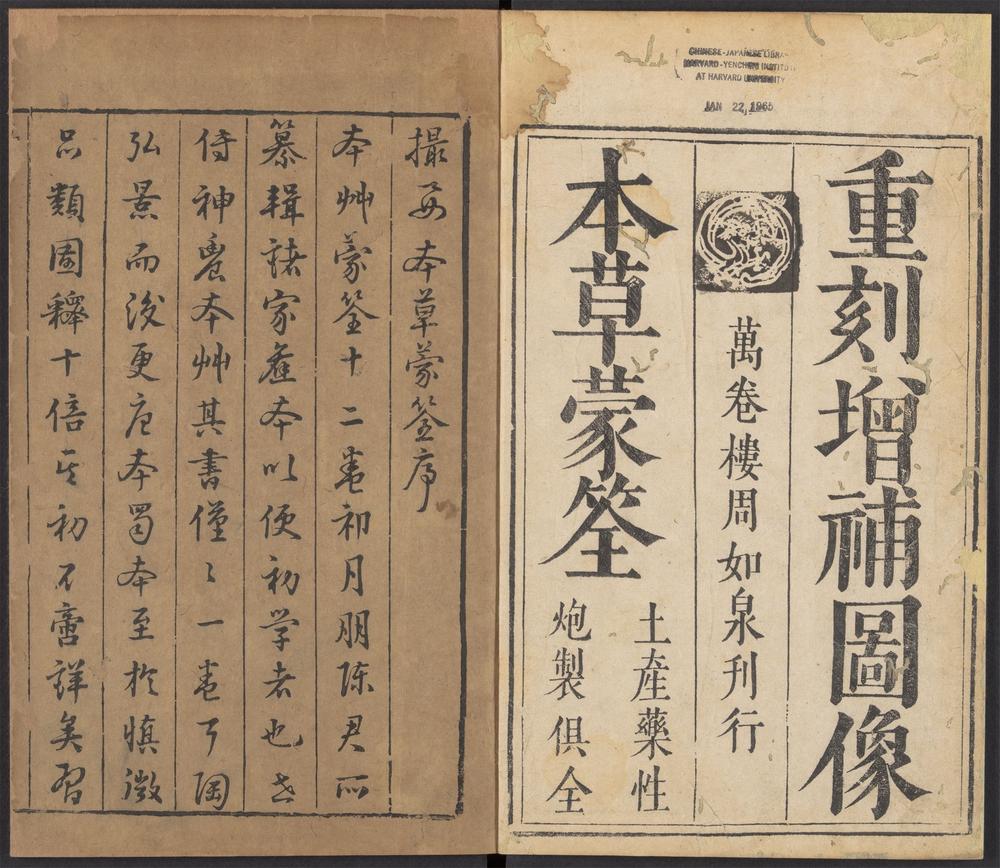 CHINESE-JAPANESE LIBRARY
HARVARD-YENCHING INSTITUTE
AT HARVARD UNIVERSITY
JAN 22 1965
重刻增補圖像
萬卷樓周如泉刊行
本草蒙筌
土產藥性
炮製俱全
撮要本草蒙筌序
本艸蒙筌十二卷初月朋陳君所
纂輯諸家產本以便初學者也世
傳神農本艸其書僅〻一卷了陶
弘景而後更唐本蜀本至於慎微
品類圖釋十倍其初不啻詳矣習